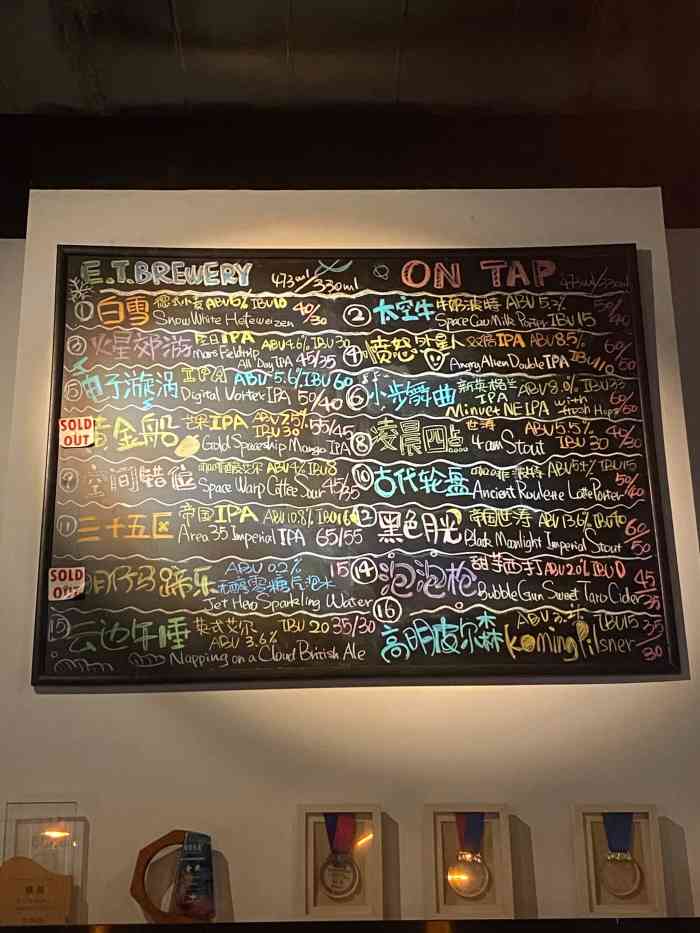 E.T.BREWERY 473ml/330ml ON TAP 473ml/330ml
① 白雪 德式小麦 ABV5% IBU10 40/30
Snow White Hefeweizen
② 太空牛 牛奶波特 ABV5.2% 50/40
Space Cow Milk Porter IBU15
火星郊游 全日IPA ABV4.6% IBU30
Mars Fieldtrip All Day IPA 45/35
④ 愤怒外星人 双倍IPA ABV8.5% 60/50
Angry Alien Double IPA
⑤ 电子漩涡 ABV 5.6% IBU60
Digital Vortex IPA 50/40
⑥ 小步舞曲 新英格兰 IPA ABV8.0%
Minuet NEIPA with Fresh Hops 60/50
SOLD OUT
黄金船 芒果IPA IBU30 55/45
Gold Spaceship Mango IPA
⑧ 凌晨四点 世涛 ABV5.5% 40/30
4am Stout IBU30
⑨ 空间错位 咖啡酸艾尔 ABV4% IBU8
Space Warp Coffee Sour 45/35
⑩ 古代轮盘 咖啡拿铁波特 IBU15 50/40
Ancient Roulette Latte Porter
⑪ 三十五区 帝国IPA ABV10.8%
Area 35 Imperial IPA 65/55
⑫ 黑色月光 帝国世涛 ABV13.6% 60/50
Black Moonlight Imperial Stout
SOLD OUT
ABV 0.2% 15
无醇零糖片泡水
Jet Hero Sparkling Water
⑭ 泡泡枪 甜芋西打 ABV2.0% IBU0 45/35
BubbleGun Sweet Taro Cider
⑮ 云边午睡 英式艾尔 IBU20 35/30
ABV 3.6%
Napping on a Cloud British Ale
⑯ 高明皮尔森 IBU15 35/30
Koming Pilsner